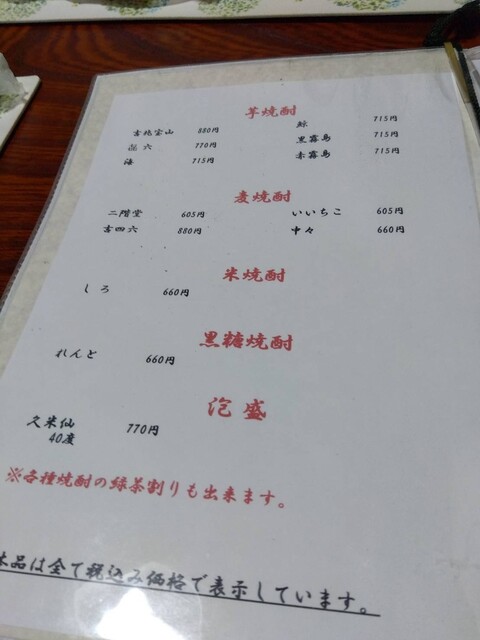 芋焼酎
吉兆宝山 880円 鯨 715円
㐂六 770円 黒霧島 715円
海 715円 赤霧島 715円
麦焼酎
二階堂 605円 いいちこ 605円
吉四六 880円 中々 660円
米焼酎
しろ 660円
黒糖焼酎
れんと 660円
泡盛
久米仙 770円
40度
※各種焼酎の緑茶割りも出来ます。
品は全て税込み価格で表示しています。